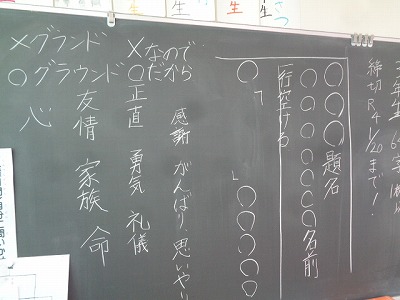 締切 R4 1/20まで!
〇〇〇題名
〇〇〇〇〇〇名前
一行空ける
〇「 」〇〇〇〇〇
感謝 がんばり、思いやり
×なので
〇だから
正直 勇気 礼儀
×グランド
〇グラウンド
友情 家族 命
心